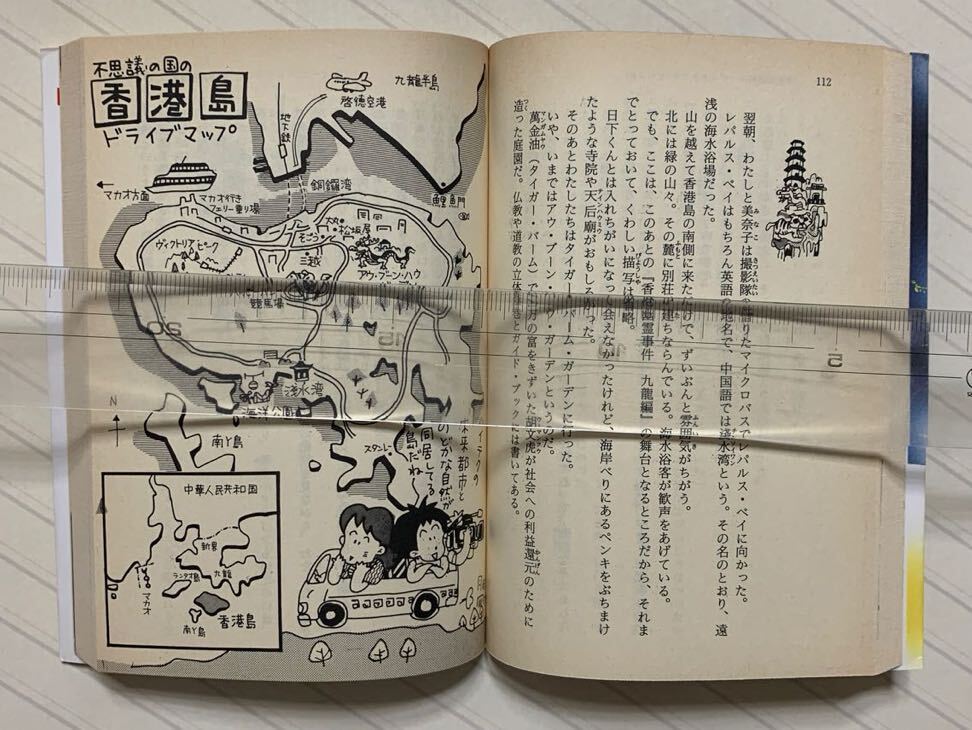 112
翌朝、わたしと美奈子は撮影隊
りたマイクロバスでレパルス・ベイに向かった。
レパルス・ベイはもちろん英語の地名で、中国語では浅水湾という。その名のとおり、遠
浅の海水浴場だった。
山を越えて香港島の南側に来ただけで、ずいぶんと雰囲気がちがう。
北には緑の山々。その麓に別荘が建ちならんでいる。海水浴客が歓声をあげている。
でも、ここは、このあとの『香港幽霊事件 九龍編』の舞台となるところだから、それま
でとっておいて、くわしい描写は省略。
日下くんとは入れちがいになって会えなかったけれど、海岸べりにあるペンキをぶちまけ
たような寺院や天后廟がおもしろかった。
そのあとわたしたちはタイガー・バーム・ガーデンに行った。
いや、いまではアウ・ブーン・ハウ・ガーデンというのだ。
萬金油（タイガー・バーム）で
万の富をきずいた胡文虎が社会への利益還元のために
造った庭園だ。仏教や道教の立体
とガイド・ブックには書いてある。
不思議の国の
香港島
ドライブマップ
九龍半島
啓徳空港
地下鉄
銅鑼湾
鯉魚門
マカオ方面
マカオ行き
フェリー乗り場
ヴィクトリアピーク
そごう
大丸
松坂屋
三越
アウ・ブーン・ハウ
競馬場
浅水湾
海洋公園
スタンレー
N
南丫島
未来都市と
のどかな自然が
同居してる
島だね
中華人民共和国
新界
ランタオ島
九龍
マカオ
香港島
南丫島
20
15
10
5